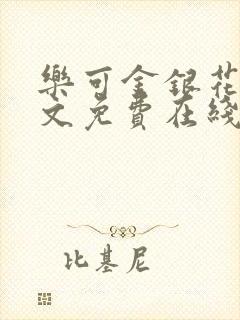 樂可金銀花
文免費在綫
比基尼